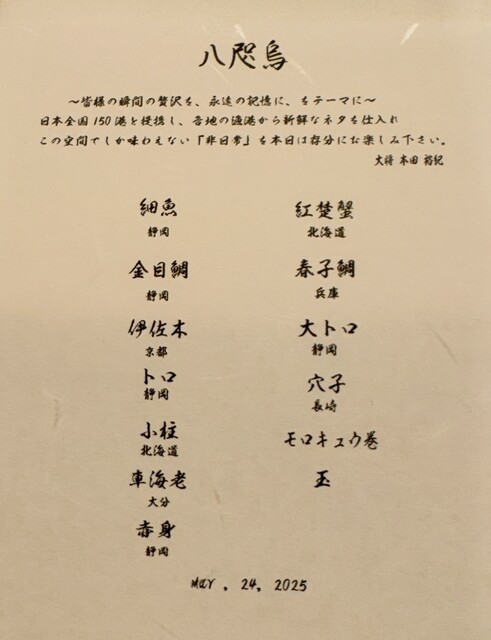 八咫烏
～皆様の瞬間の贅沢を、永遠の記憶に、をテーマに～
日本全国150港と提携し、各地の漁港から新鮮なネタを仕入れ
この空間でしか味わえない「非日常」を本日は存分にお楽しみ下さい。
大将 本田 裕紀
細魚
静岡
金目鯛
静岡
伊佐木
京都
トロ
静岡
小柱
北海道
車海老
大分
赤身
静岡
紅楚蟹
北海道
春子鯛
兵庫
大トロ
静岡
穴子
長崎
モロキュウ巻
玉
Mar . 24, 2025